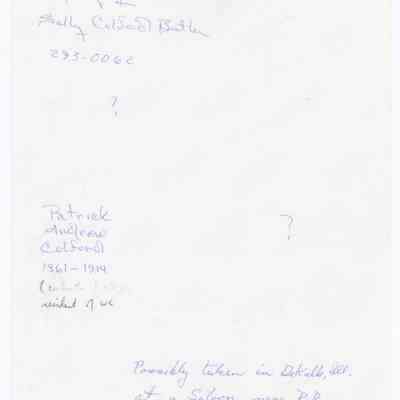 Shelly Colford Butler
293-0062
?
Patrick
Andrew
Colford
1861-1914
?
resident of WC
Possibly taken in DeKalb, Ill.
at a Saloon near RR